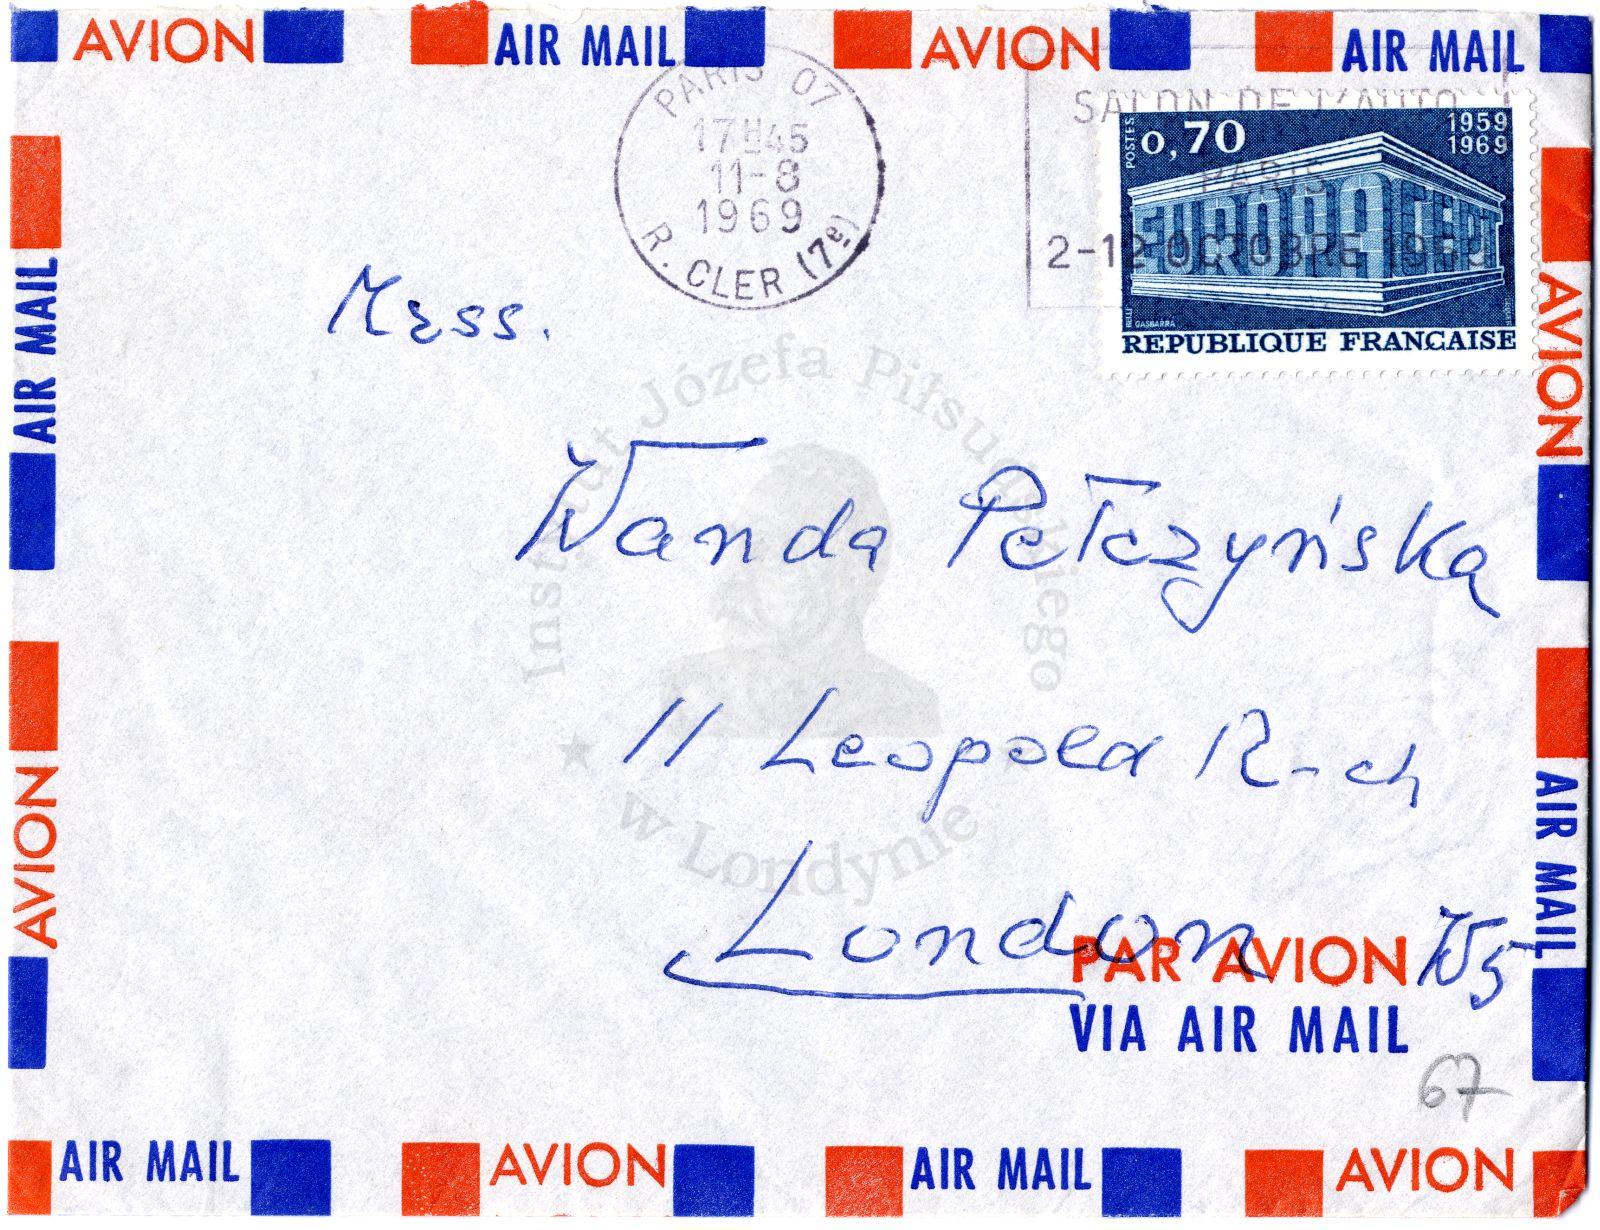 AVION AIR MAIL AVION AIR MAIL
PARIS 07
17H45
11-8
1969
R. CLER (7e)
SALON DE L'AUTO
PARIS
2-12 OCTOBRE 1969
POSTES
0,70
1959
1969
EUROPA CEPT
GASBARRA
REPUBLIQUE FRANÇAISE
AIR MAIL
AVION
AVION
AIR MAIL
Mess.
Wanda Pełczyńska
11 Leopold R-ch
London W5
PAR AVION
VIA AIR MAIL
67
Instytut Józefa Piłsudskiego
w Londynie
AIR MAIL AVION AIR MAIL AVION